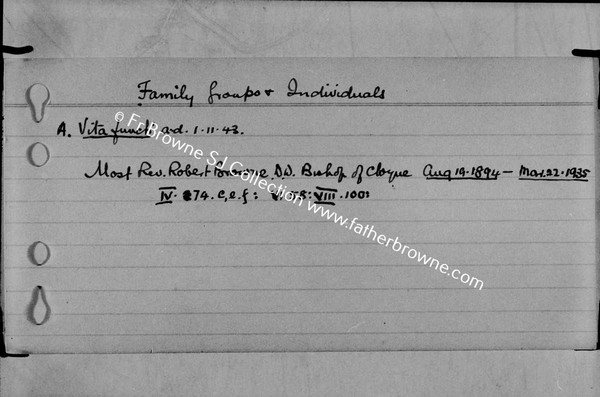 Family Groups & Individuals
A. Vita functi a.d. 1.11.43.
Most Rev. Robert Browne D.D. Bishop of Cloyne Aug 19.1894 - Mar. 22.1935
IV. 74. c, e. f: VIII. 100
© Fr Browne S J Collection www.fatherbrowne.com